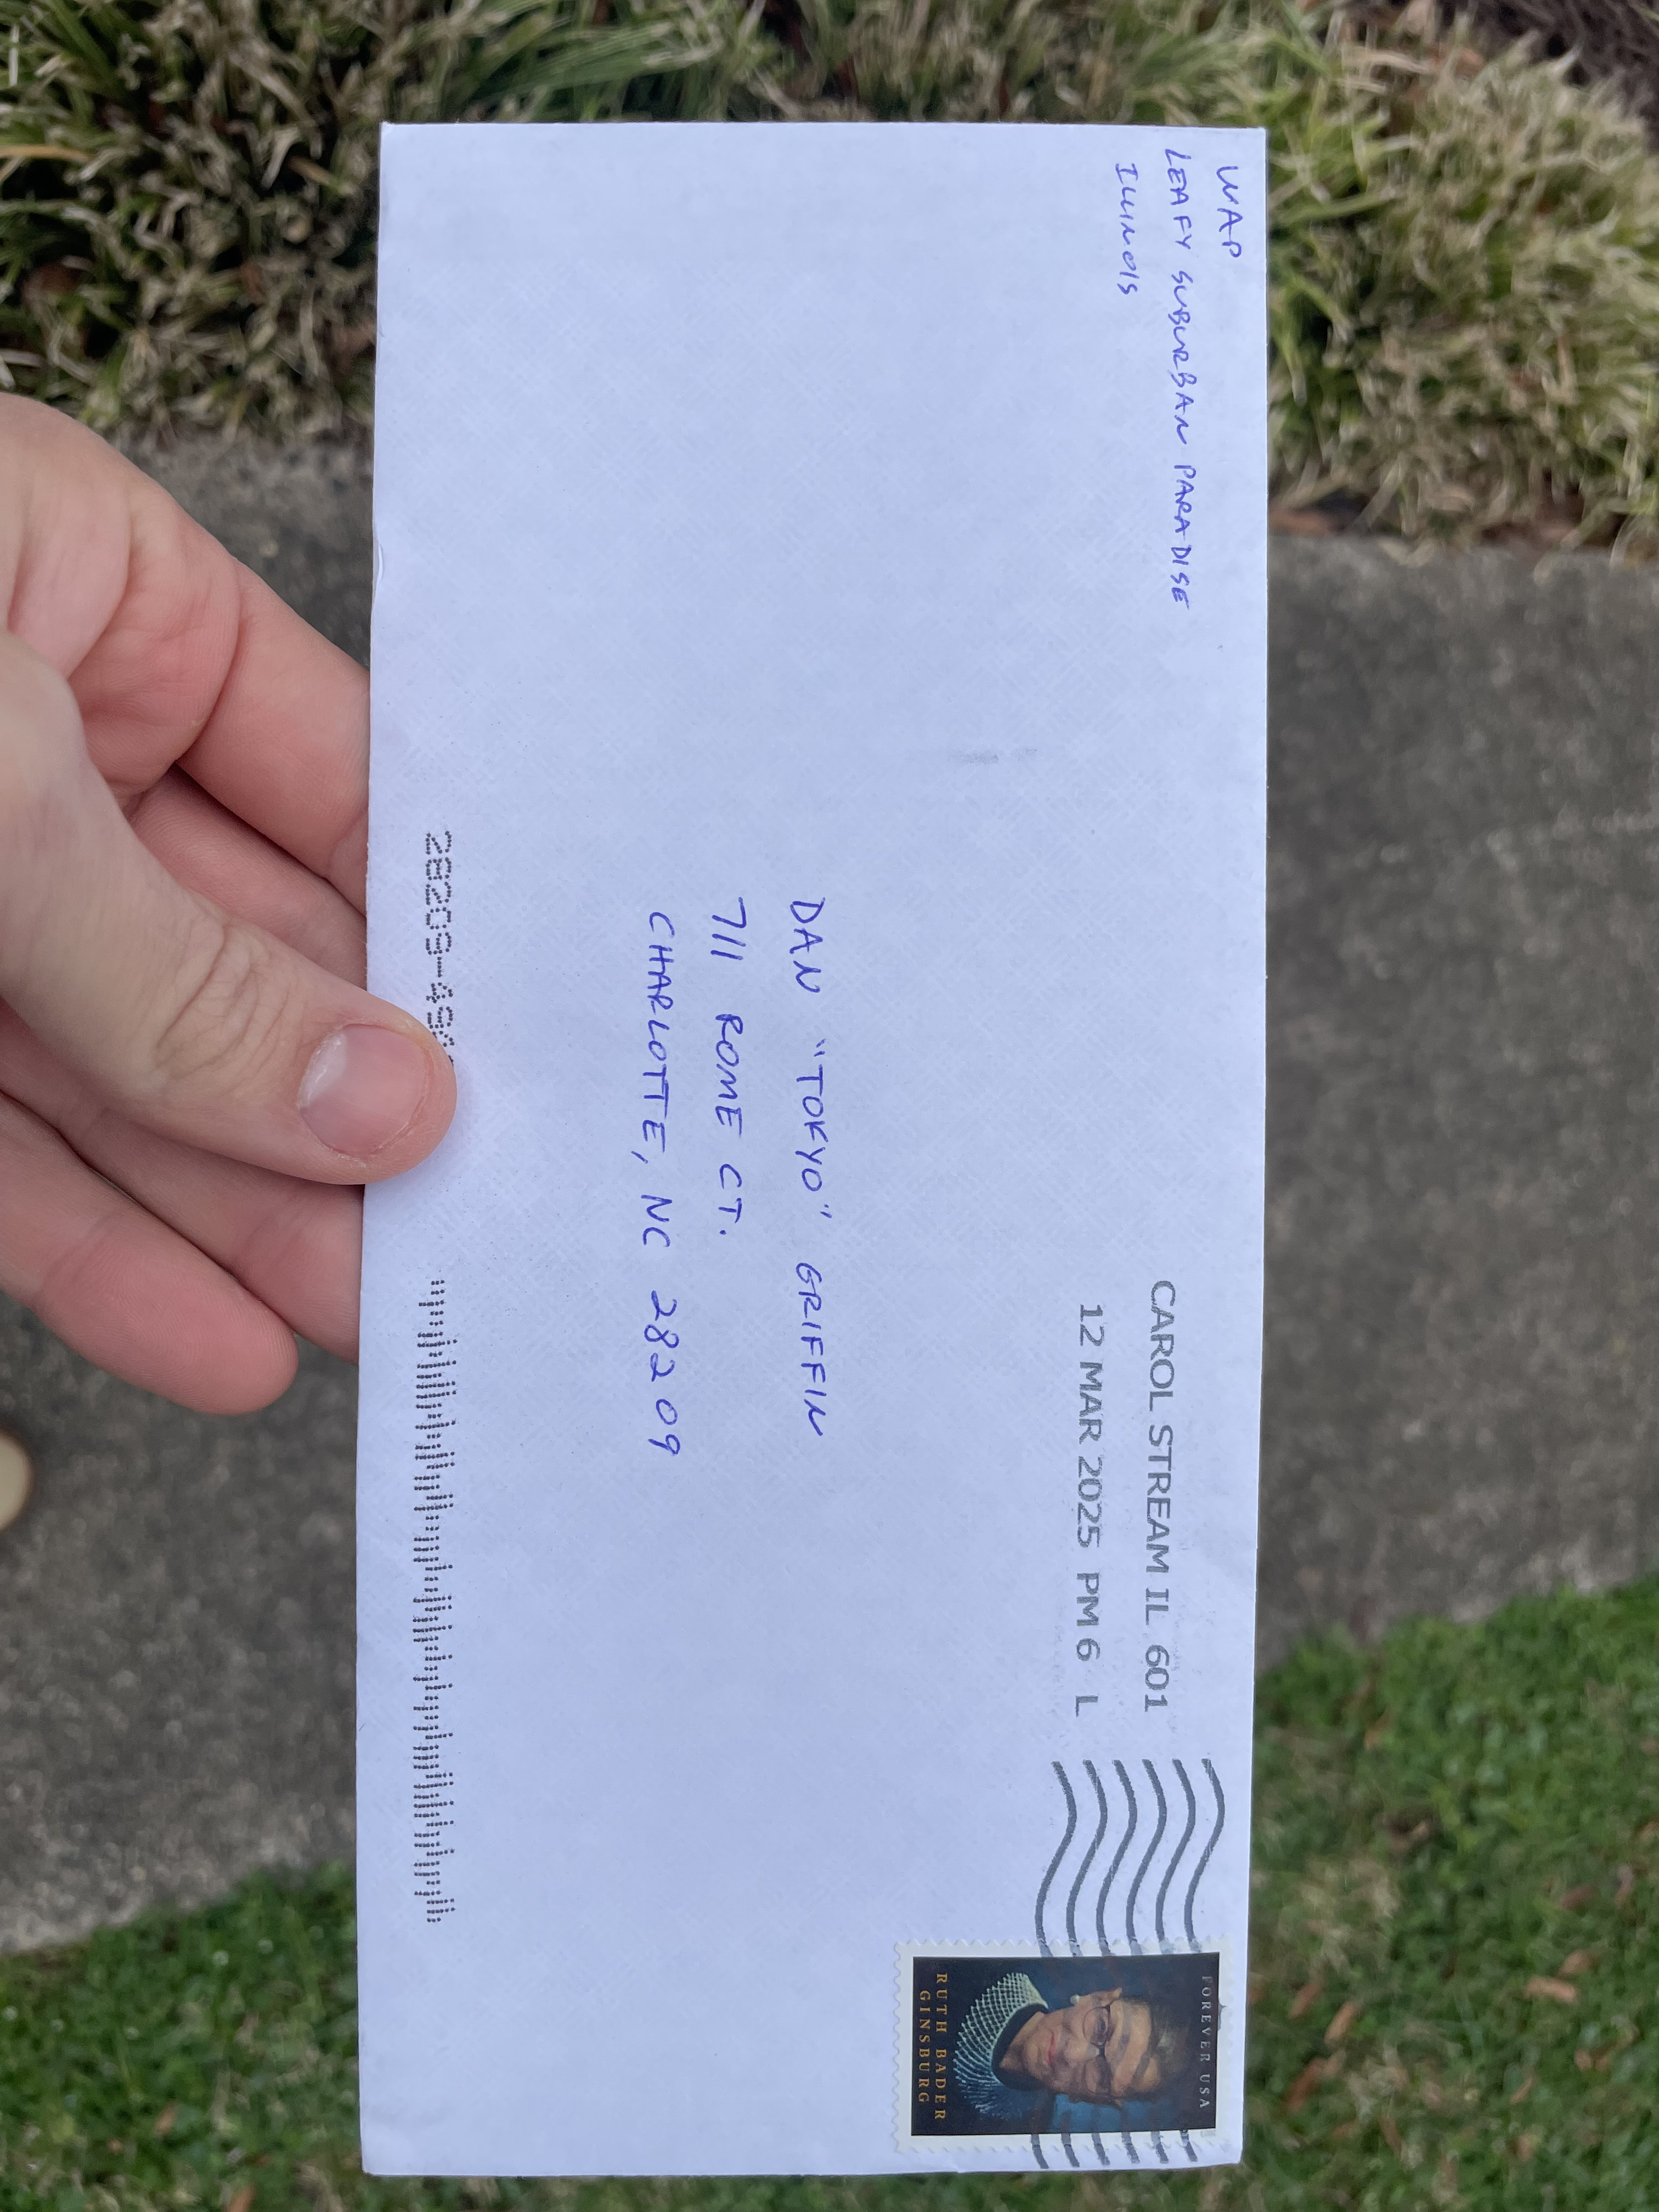 WAP
LEAFY SUBURBAN PARADISE
ILLINOIS
CAROL STREAM IL 601
12 MAR 2025 PM 6 L
FOREVER USA
RUTH BADER
GINSBURG
DAN "TOKYO" GRIFFIN
711 ROME CT.
CHARLOTTE, NC 28209